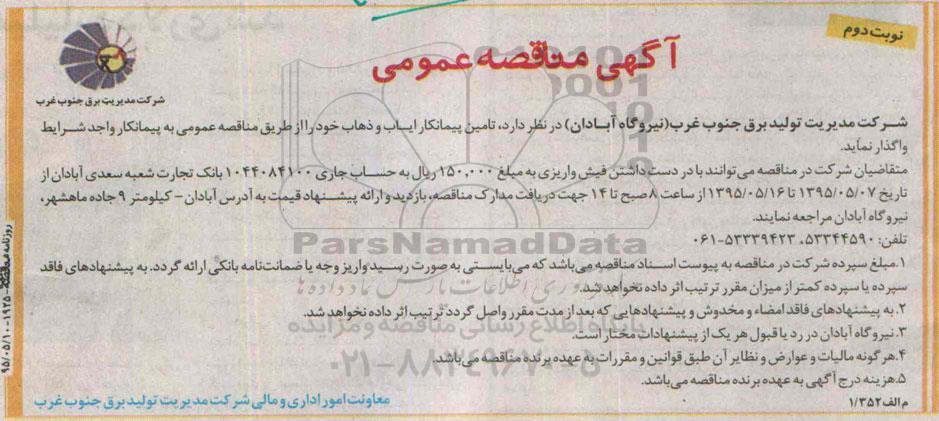 نوبت دوم
آگهی مناقصه عمومی
شرکت مدیریت برق جنوب غرب
شرکت مدیریت تولید برق جنوب غرب(نیروگاه آبادان) در نظر دارد، تامین پیمانکار ایاب و ذهاب خود را از طریق مناقصه عمومی به پیمانکار واجد شرایط
واگذار نماید.
متقاضیان شرکت در مناقصه می‌توانند با در دست داشتن فیش واریزی به مبلغ ۱۵۰,۰۰۰ ریال به حساب جاری ۱۰۴۴۰۸۴۱۰۰ بانک تجارت شعبه سعدی آبادان از
تاریخ ۱۳۹۵/۰۵/۰۷ تا ۱۳۹۵/۰۵/۱۶ از ساعت ۸ صبح تا ۱۴ جهت دریافت مدارک مناقصه، بازدید و ارائه پیشنهاد قیمت به آدرس آبادان - کیلومتر ۹ جاده ماهشهر،
نیروگاه آبادان مراجعه نمایند.
تلفن: ۵۳۳۴۴۵۹۰، ۰۶۱-۵۳۳۳۹۴۲۳
ParsNamadData
۱.مبلغ سپرده شرکت در مناقصه به پیوست اسناد مناقصه می‌باشد که می‌بایستی به صورت رسید واریز وجه یا ضمانت‌نامه بانکی ارائه گردد. به پیشنهادهای فاقد
سپرده یا سپرده کمتر از میزان مقرر ترتیب اثر داده نخواهد شد.
۲. به پیشنهادهای فاقد امضاء و مخدوش و پیشنهادهایی که بعد از مدت مقرر واصل گردد ترتیب اثر داده نخواهد شد.
پایگاه اطلاع رسانی مناقصه و مزایده
۳.نیروگاه آبادان در رد یا قبول هر یک از پیشنهادات مختار است.
۴.هر گونه مالیات و عوارض و نظایر آن طبق قوانین و مقررات به عهده برنده مناقصه می‌باشد.
۰۲۱-۸۸۳۴۹۶۷۰-۵
۵.هزینه درج آگهی به عهده برنده مناقصه می‌باشد.
م الف ۱/۳۵۲
معاونت امور اداری و مالی شرکت مدیریت تولید برق جنوب غرب
۹۵/۰۵/۱۰-۱۹۲۵-